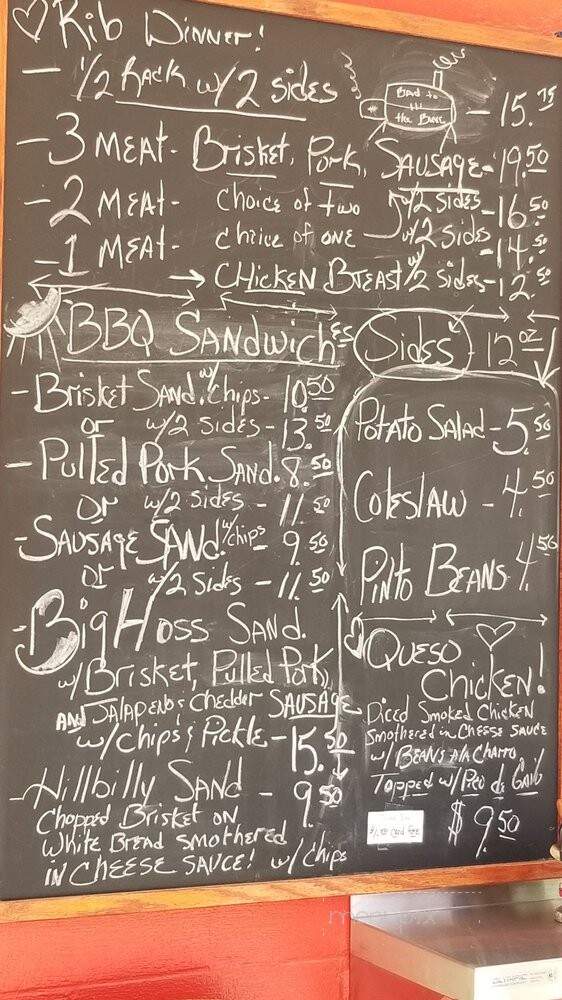 Rib Dinner!
- 1/2 Rack w/ 2 sides - 15.75
- 3 MEAT - Brisket, Pork, SAUSAGE - 19.50
- 2 MEAT - choice of two w/ 2 sides - 16.50
- 1 MEAT - choice of one w/ 2 sides - 14.50
CHICKEN BREAST w/ 2 sides - 12.50
BBQ SANDWICHES
- Brisket Sand. w/ chips - 10.50
or w/ 2 sides - 13.50
- Pulled Pork Sand. 8.50
or w/ 2 sides - 11.50
- SAUSAGE SAND. w/ chips - 9.50
or w/ 2 sides - 11.50
- Big Hoss SAND.
w/ Brisket, Pulled Pork,
AND JALAPENO & Chedder SAUSAGE
w/ CHIPS & PICKLE - 15.50
- Hillbilly SAND - 9.50
Chopped Brisket ON
White Bread smothered
IN CHEESE SAUCE! w/ chips
Sides - 12 oz
Potato Salad - 5.50
Coleslaw - 4.50
Pinto BEANS 4.50
QUESO
Chicken!
Diced Smoked Chicken
Smothered in CHEESE SAUCE
w/ BEANS A LA Charro
Topped w/ Pico de Gallo
$9.50